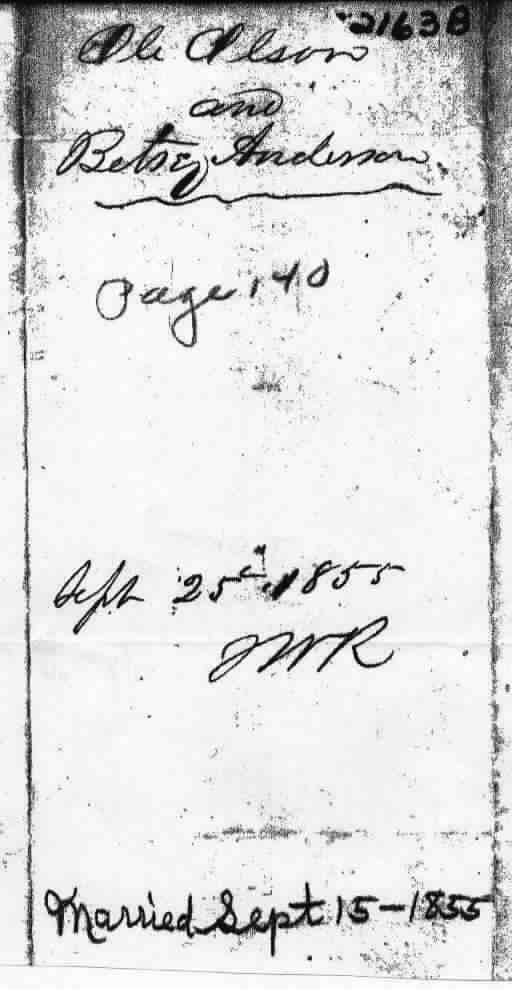 21638
Ole Olson
and
Betsey Anderson.
Page 140
Sept 25 1855
JWR
Married Sept 15-1855